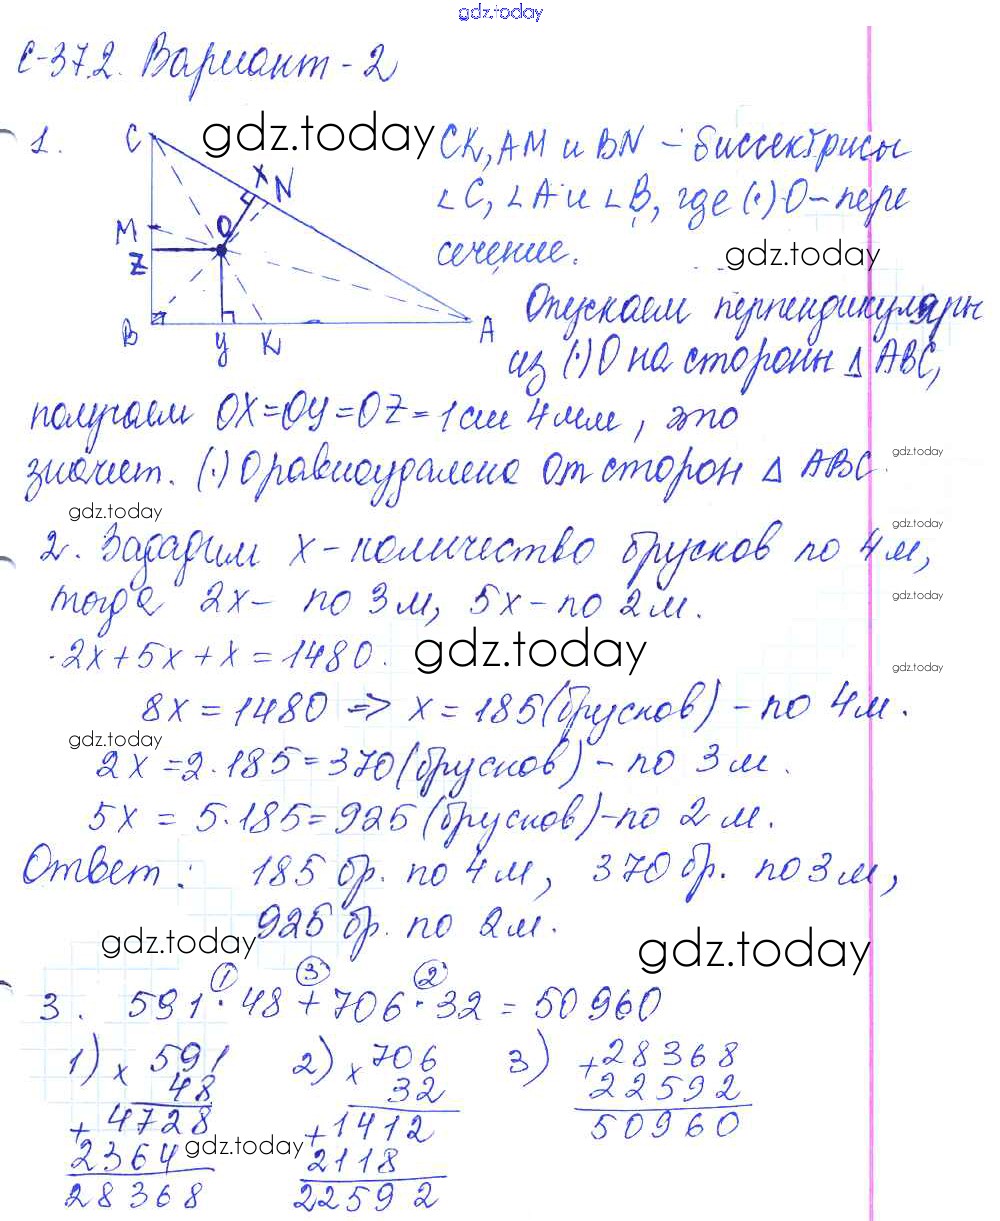 gdz.today
С-37.2. Вариант - 2
1.
C
X
N
M
O
Z
B
У
K
A
gdz.today
CK, AM и BN - биссектрисы
∠C, ∠A и ∠B, где (·) O - пере
сечение.
gdz.today
Опускаем перпендикуляры
из (·) O на стороны △ ABC,
получаем OX = OУ = OZ = 1 см 4 мм, это
значит. (·) O равноудалена от сторон △ ABC.
gdz.today
gdz.today
gdz.today
2. Зададим x - количество брусков по 4 м,
тогда 2x - по 3 м, 5x - по 2 м.
gdz.today
2x + 5x + x = 1480.
gdz.today
gdz.today
8x = 1480 => x = 185 (брусков) - по 4 м.
gdz.today
2x = 2 · 185 = 370 (брусков) - по 3 м.
5x = 5 · 185 = 925 (брусков) - по 2 м.
Ответ: 185 бр. по 4 м, 370 бр. по 3 м,
925 бр. по 2 м.
gdz.today
gdz.today
1 3 2
3. 591 · 48 + 706 · 32 = 50960
1) x 591
48
+ 4728
2364
28368
gdz.today
2) x 706
32
+ 1412
2118
22592
3) + 28368
22592
50960